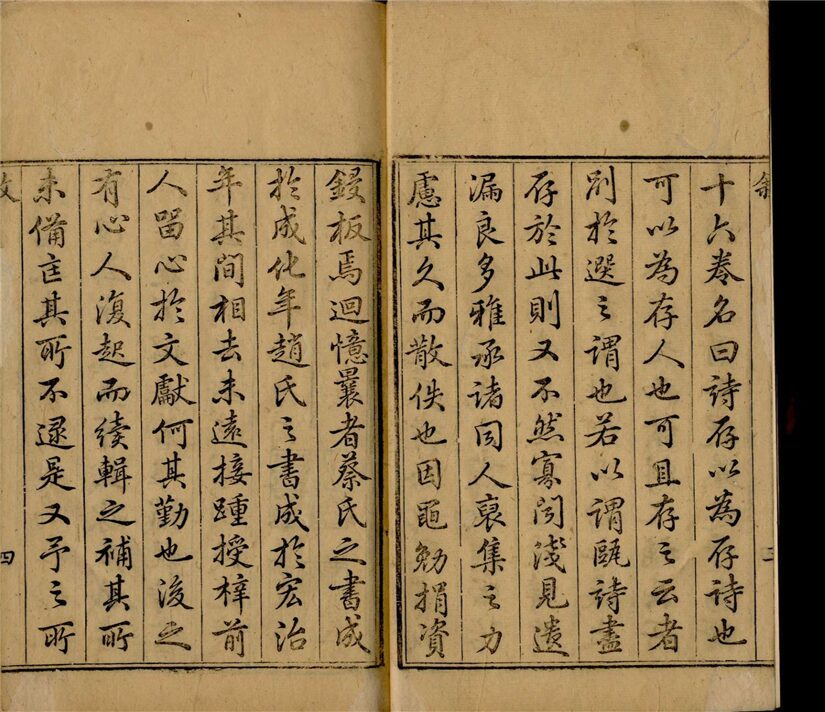 十六卷名曰詩存以為存詩也
可以為存人也可且存之云者
別於選之謂也若以謂甌詩盡
存於此則又不然寡聞淺見遺
漏良多雅承諸同人裒集之力
慮其久而散佚也因黽勉捐資
三
鋟板焉迴憶曩者蔡氏之書成
於成化年趙氏之書成於宏治
年其間相去未遠接踵授梓前
人留心於文獻何其勤也後之
有心人復起而續輯之補其所
未備匡其所不逮是又予之所
四